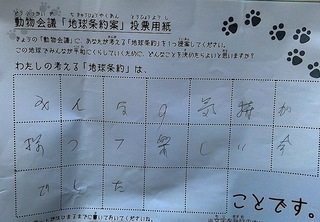 動物会議「地球条約案」投票用紙
きょうの「動物会議」に、あなたが考える「地球条約」を1つ提案してください。
この地球でみんなが平和にくらしていくために、どんなことを決めたらよいと思いますか？
わたしの考える「地球条約」は、
みんなの気持が
揃って楽しい会
でした
ことです。